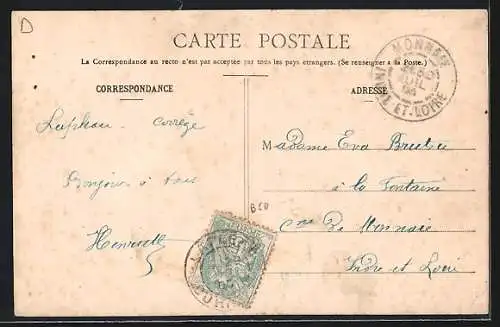 D
CARTE POSTALE
La Correspondance au recto n'est pas acceptée par tous les pays étrangers. (Se renseigner à la Poste.)
CORRESPONDANCE
ADRESSE
MONNAIE
INDRE-ET-LOIRE
Corrèze
Madame Eva
Bonjour à tous
à la Fontaine
Cne De Monnaie
Henriette
Indre et Loire